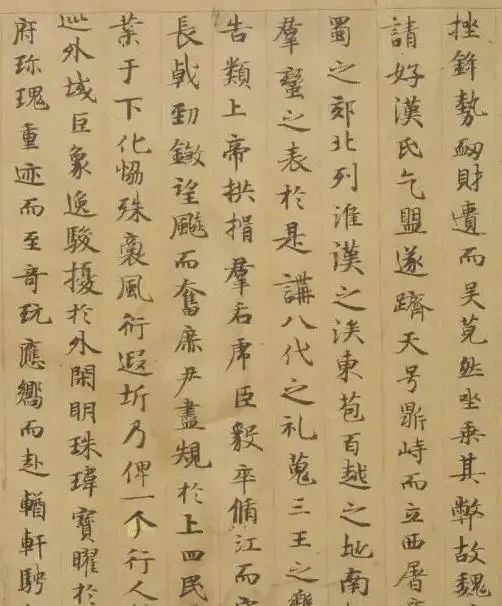 挫鋒勢衂財匱而吴莧然坐乗其弊故魏
請好漢氏气盟遂躋天号鼎峙而立西屠
蜀之郊北列淮漢之涘東苞百越之地南
羣蠻之表於是講八代之礼蒐三王之樂
告類上帝拱揖羣后虎臣毅卒脩江而守
長戟勁鎩望飈而奮庶尹盡規於上四民
業于下化恊殊裔風衍遐圻乃俾一介行人
巡外域巨象逸駿擾於外閑明珠瑋寳曜於
府珎瑰重迹而至竒玩應嚮而赴輶軒騁